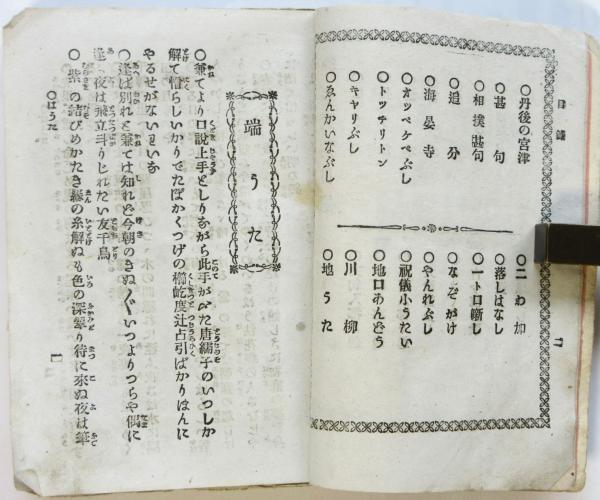 目録
〇丹後の宮津
〇甚句
〇相撲甚句
〇追分
〇海晏寺
〇オツペケペぶし
〇トツチリトン
〇キヤリぶし
〇ゑんかいなぶし
〇二わ加
〇落しはなし
〇一トロ噺し
〇なぞがけ
〇やんれぶし
〇祝儀小うたい
〇地口あんどう
〇川柳
〇地うた
端うた
〇兼てより口説上手としりながら此手が
唐繻子のいつしか
解て憎らしいかりてたばかくつげの櫛屹度辻占引ばかりほんに
やるせがないわいな
〇逢ば別れと兼ては知れど今朝のきぬ〴〵いつよりつらや偶に
逢ふ夜は飛立斗りじれたい友千鳥
〇紫の結びめかたき縁の糸解ぬも色の深翠り待に来ぬ夜は筆
〇はうた
一